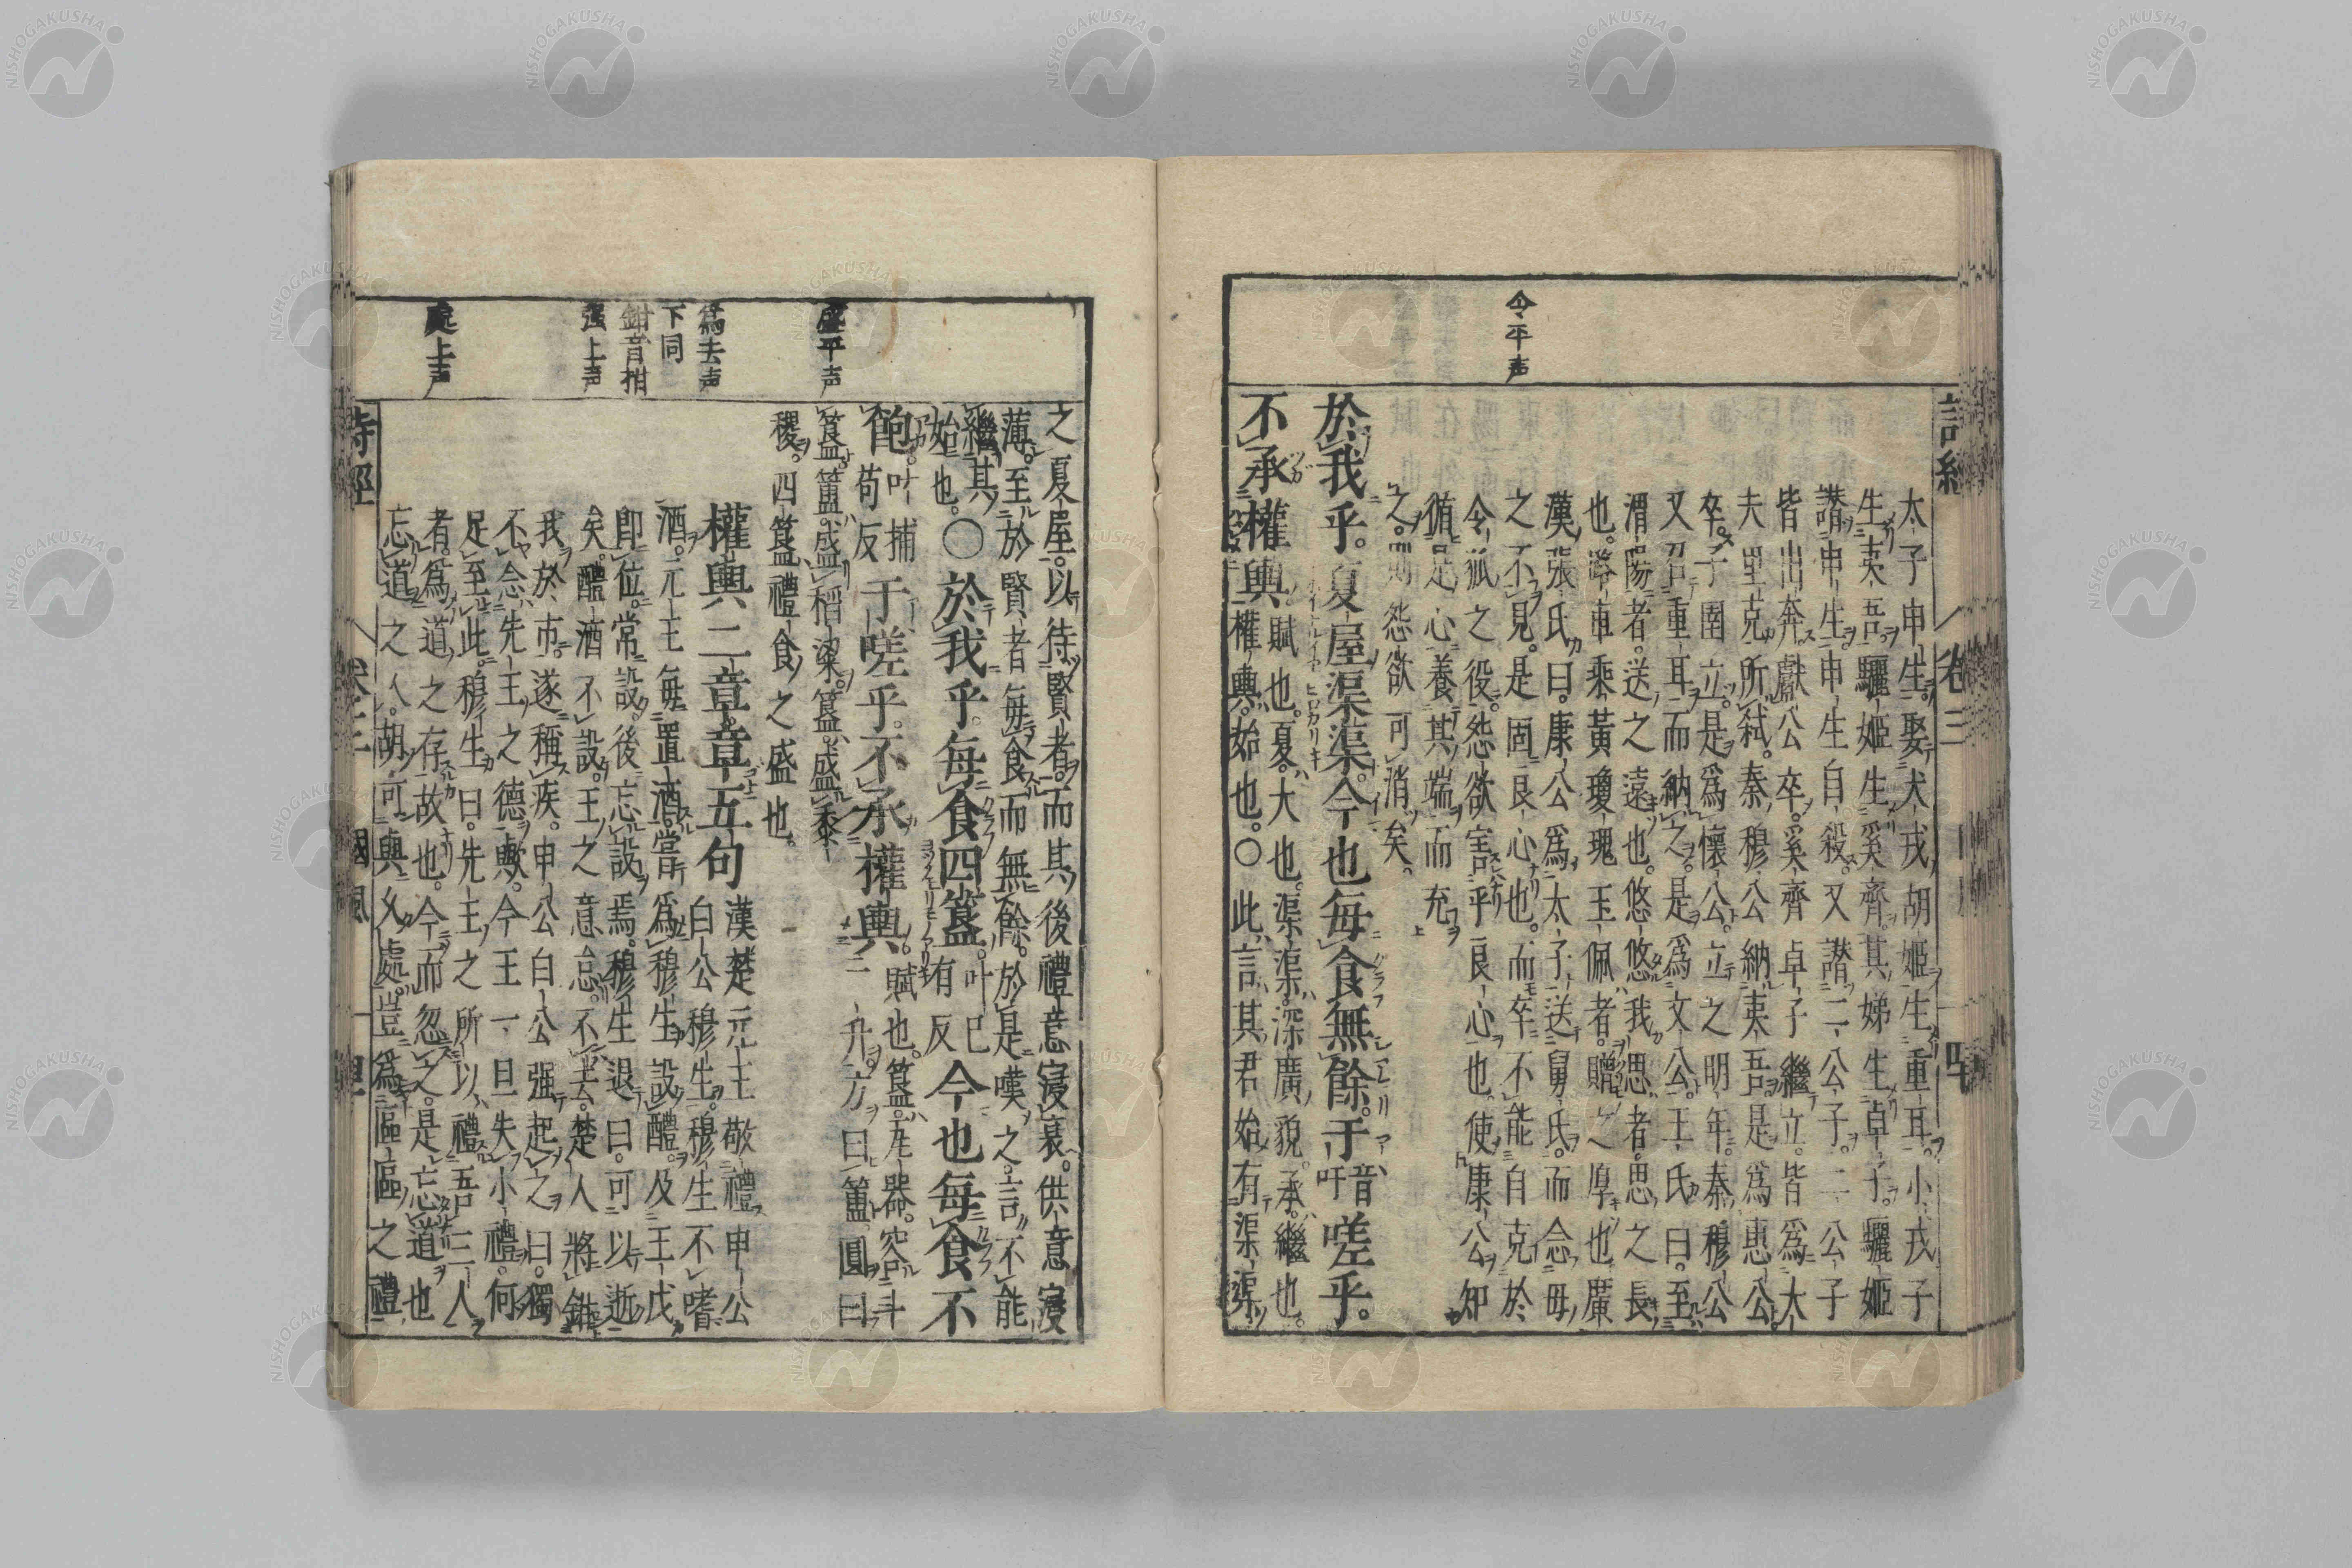 詩經 卷三 四
令平声
太子申生。娶犬戎胡姫生重耳。小戎子
生夷吾。驪姫生奚齊。其娣生卓子。驪姫
譖申生。申生自殺。又譖二公子。二公子
皆出奔。獻公卒。奚齊卓子繼立。皆爲大
夫里克所弑。秦穆公納夷吾。是爲惠公。
卒。子圉立。是爲懷公。立之明年。秦穆公
又召重耳而納之。是爲文公。王氏曰。至
渭陽者。送之遠也。悠悠我思者。思之長
也。路車乘黃瓊瑰玉佩者。贈之厚也。廣
漢張氏曰。康公爲太子。送舅氏。而念母
之不見。是固良心也。而卒不能自克於
令狐之役。怨欲害乎良心也。使康公知
循是心。養其端而充
之。則怨欲可消矣。
於我乎。夏屋渠渠。今也每食無餘。于音吁嗟乎。
不承權輿。賦也。夏。大也。渠渠。深廣貌。承。繼也。
權輿。始也。○此言其君始有渠渠
盛平声
爲去声
下同
鉗音拑
強上声
處上声
之夏屋。以待賢者。而其後禮意寖衰。供意寖
薄。至於賢者每食而無餘。於是嘆之。言不能
繼其
始也。○於我乎。每食四簋。叶已有反今也每食不
飽。叶捕苟反于嗟乎。不承權輿。賦也。簋。瓦器。容斗
二升。方曰簠。圓曰
簋。簠。盛稻粱。簋。盛黍
稷。四簋。禮食之盛也。
權輿二章。章五句漢楚元王敬禮申公
白公穆生。穆生不嗜
酒。元王每置酒。嘗爲穆生設醴。及王戊
即位。常設。後忘設焉。穆生退曰。可以逝
矣。醴酒不設。王之意怠。不去。楚人將鉗
我於市。遂稱疾。申公白公强起之曰。獨
不念先王之德歟。今王一旦失小禮。何
足至此。穆生曰。先王之所以禮吾三人
者。爲道之存故也。今而忽之。是忘道也。
忘道之人。胡可與久處。豈爲區區之禮
詩經 卷三 國風